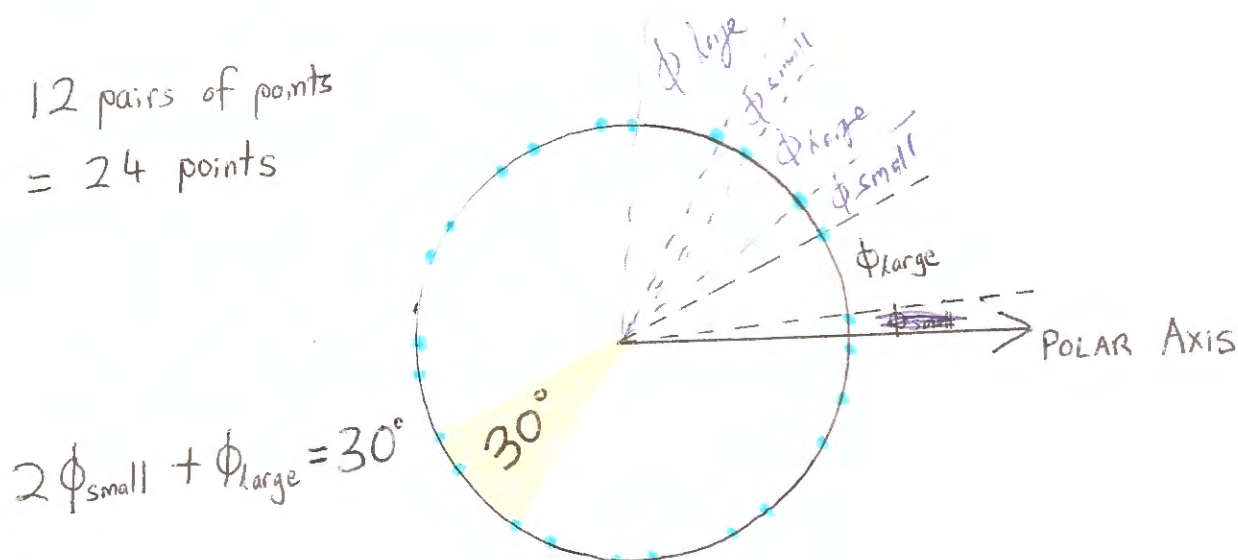 12 pairs of points
= 24 points
ϕ large
ϕ small
ϕ large
ϕ small
ϕ large
ϕ small
POLAR AXIS
30°
2ϕ small + ϕ large = 30°